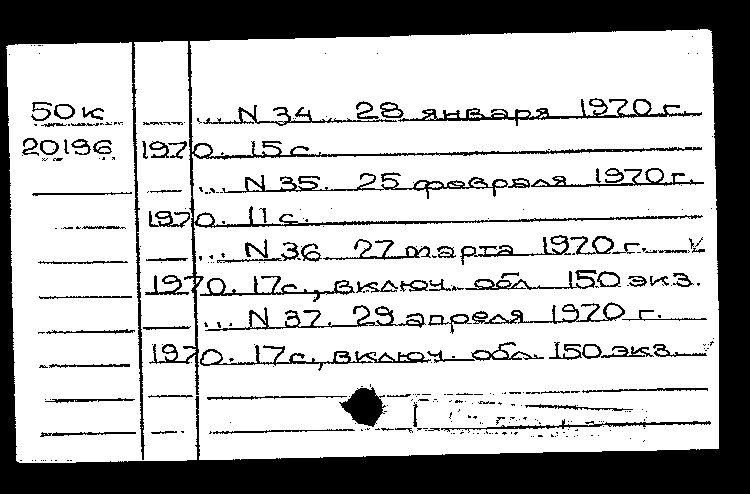 50к ... N 34. 28 января 1970 г.
20196 1970. 15 с.
... N 35. 25 февраля 1970 г.
1970. 11 с.
... N 36. 27 марта 1970 г. √
1970. 17с., включ. обл. 150 экз.
... N 37. 29 апреля 1970 г.
1970. 17с., включ. обл. 150 экз. √